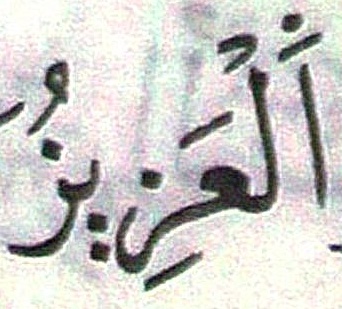 اَلْعَزِيزُ